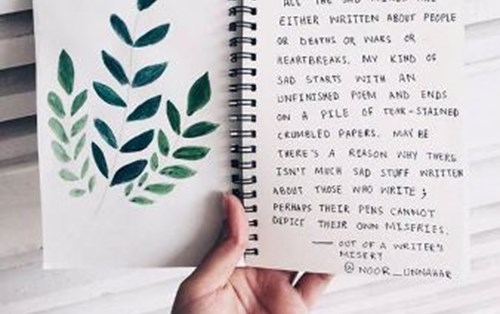 ALL THE SAD
EITHER WRITTEN ABOUT PEOPLE
OR DEATHS OR WARS OR
HEARTBREAKS. MY KIND OF
SAD STARTS WITH AN
UNFINISHED POEM AND ENDS
ON A PILE OF TEAR-STAINED
CRUMBLED PAPERS. MAY BE
THERE'S A REASON WHY THERE
ISN'T MUCH SAD STUFF WRITTEN
ABOUT THOSE WHO WRITE ;
PERHAPS THEIR PENS CANNOT
DEPICT THEIR OWN MISERIES.
— OUT OF A WRITER'S
MISERY
@NOOR_UNNAHAR